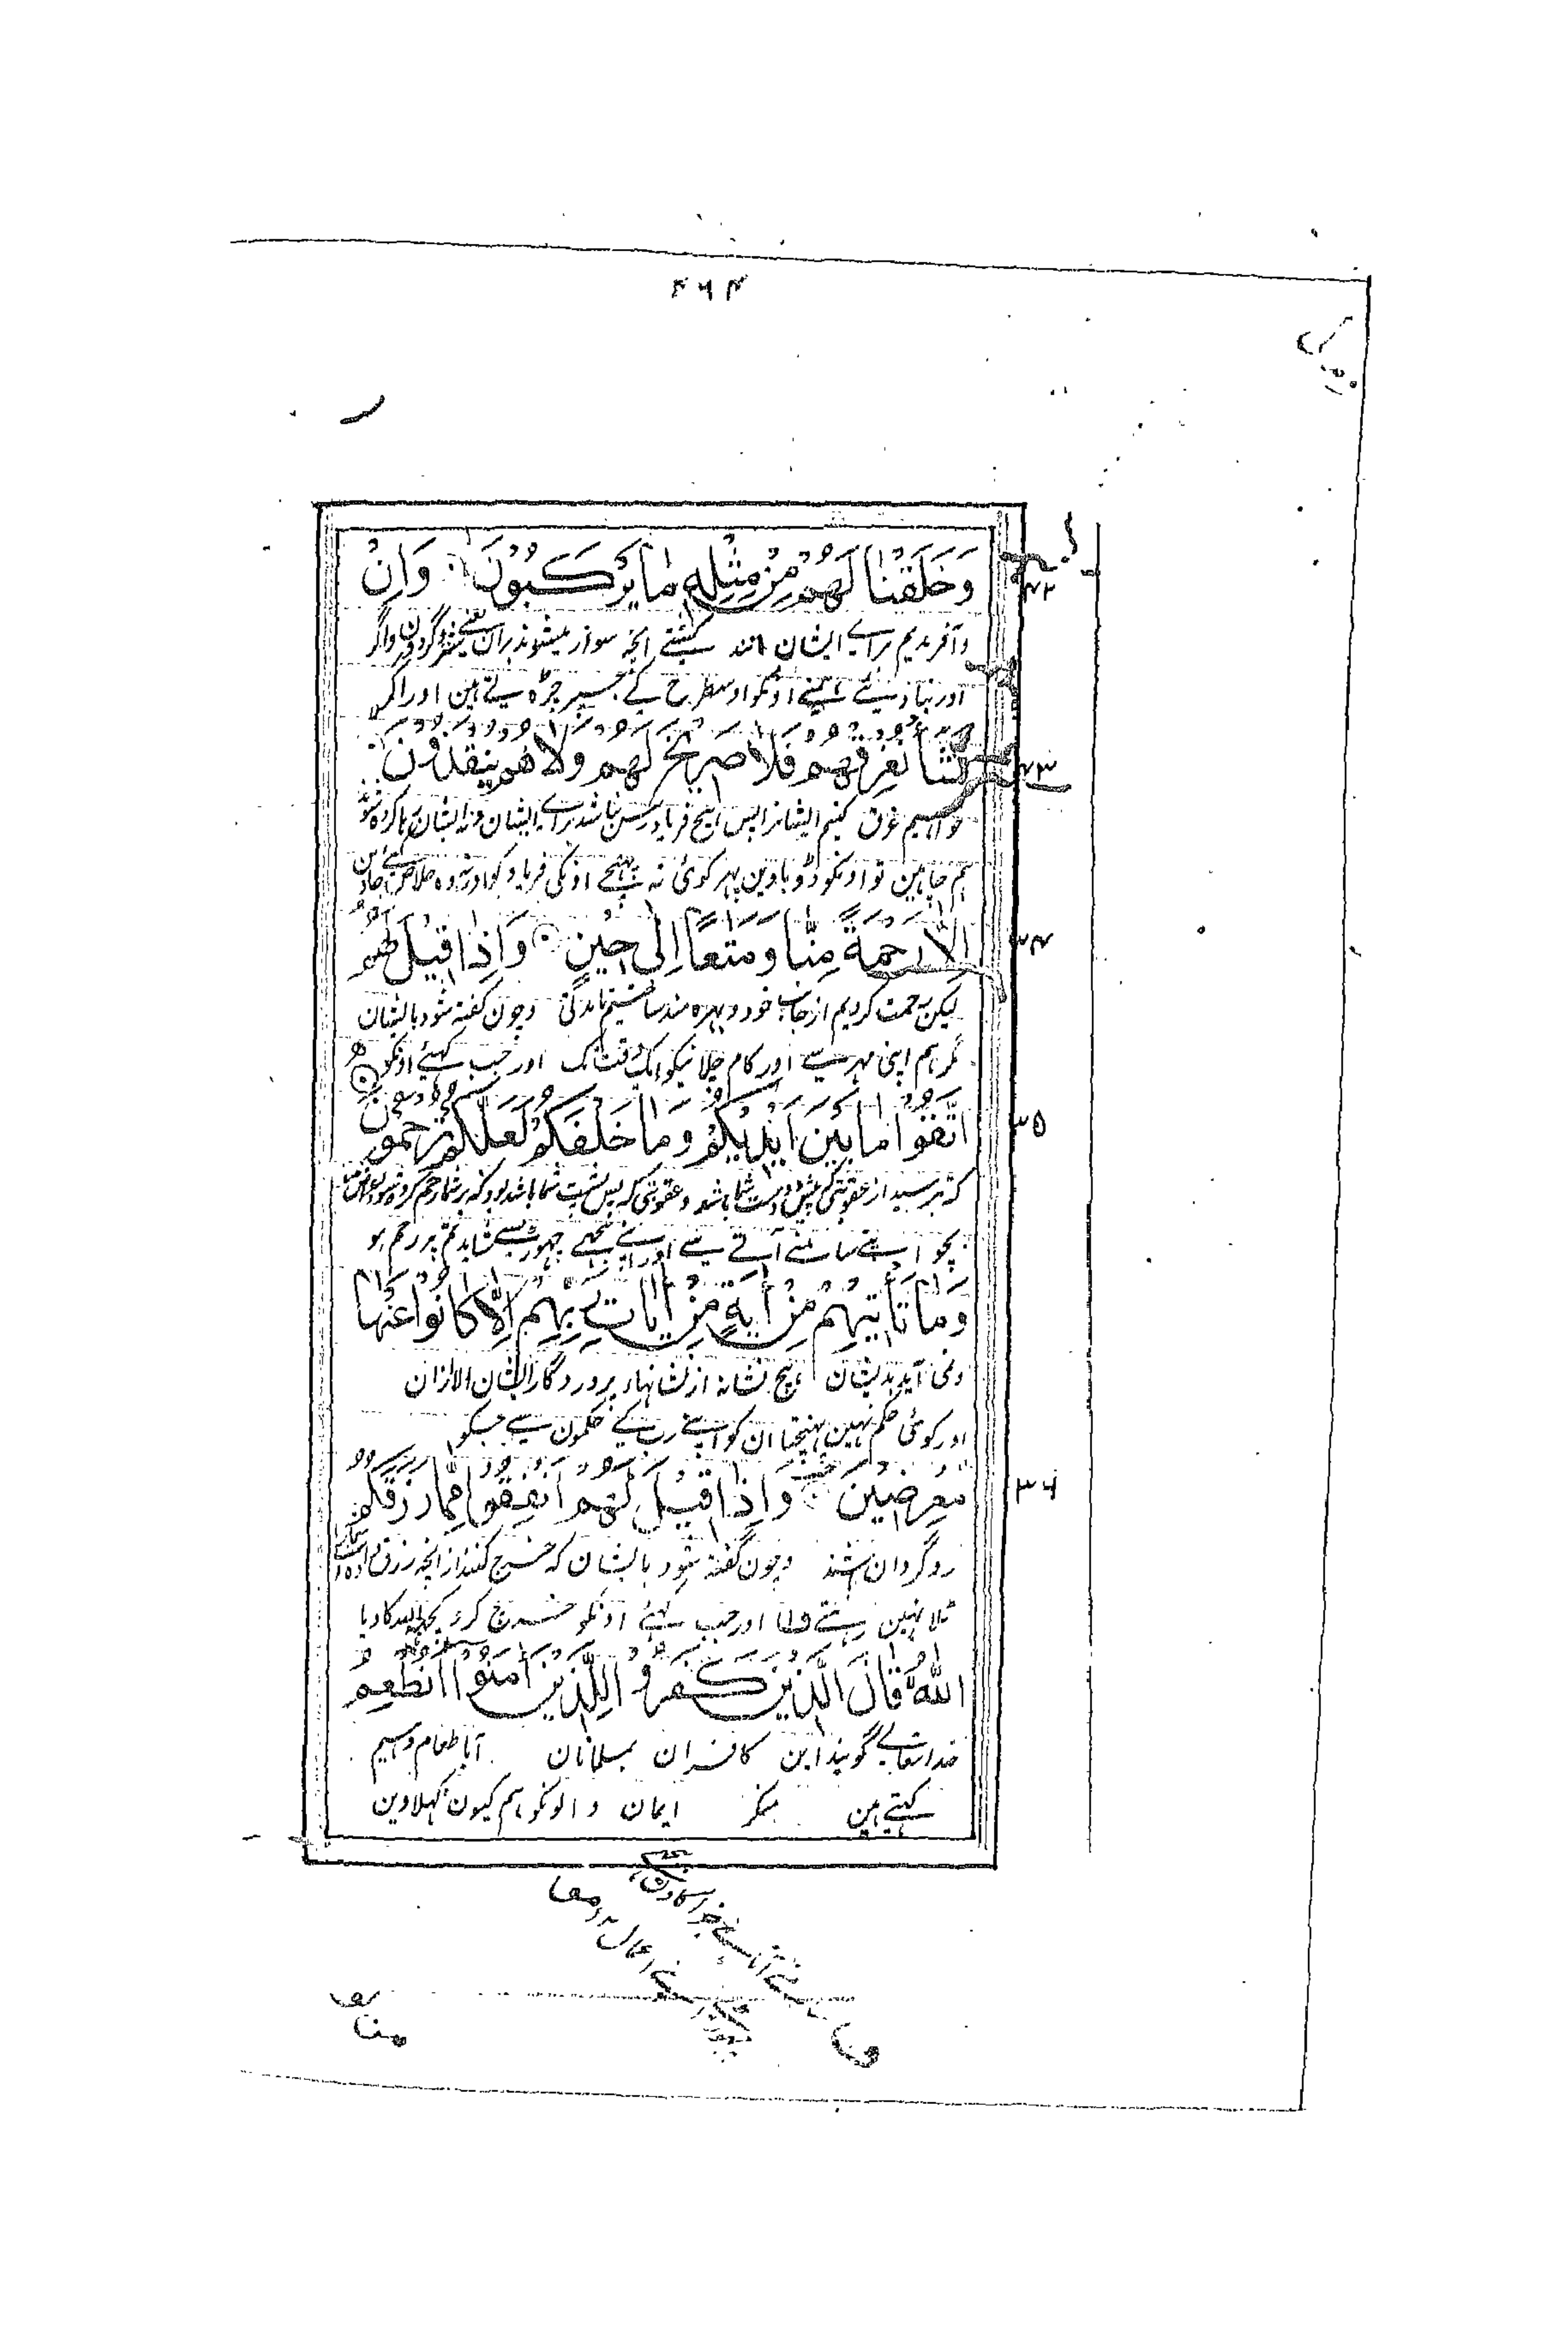 ۴۶۴
وَخَلَقْنَا لَهُمْ مِنْ مِثْلِهِ مَا يَرْكَبُونَ وَاِنْ
وآفریدیم براے ایشان مانند کشتے آنچہ سوار میشوند بران واگر
اور بنا دیئے ہمنے اونکو اوسطرح کے جسپر چڑہ لیتے ہین اور اگر
۴۳
نَشَأْ نُغْرِقْهُمْ فَلَا صَرِيْخَ لَهُمْ وَلَا هُمْ يُنْقَذُوْنَ
خواہیم غرق کنیم ایشانرا پس ہیچ فریادرس نباشد براے ایشان ونہ ایشان رہا کردہ شوند
ہم چاہین تو اونکو ڈوباوین پہر کوئی نہ پہنچے اونکی فریاد کو اور نہ وہ خلاص کئے جاوین
۳۴
اِلَّا رَحْمَةً مِنَّا وَمَتَاعًا اِلٰى حِيْنٍ وَاِذَا قِيْلَ لَهُمُ
لیکن رحمت کردیم از جانب خود وبہرہ مند ساختیم تا مدتی وچون گفتہ شود بایشان
مگر ہم اپنی مہر سے اور کام چلانیکو ایک وقت تک اور جب کہئے اونکو
۳۵
اتَّقُوْا مَا بَيْنَ اَيْدِيْكُمْ وَمَا خَلْفَكُمْ لَعَلَّكُمْ تُرْحَمُوْنَ
کہ بترسید از عقوبتی کہ پیش دست شما باشد وعقوبتی کہ پس پشت شما باشد بود کہ بر شما رحم کردہ شود
بچو اپنے سامنے آتے سے اور اپنے پیچھے چہوڑے سے شاید تم پر رحم ہو
وَمَا تَأْتِيْهِمْ مِنْ اٰيَةٍ مِنْ اٰيَاتِ رَبِّهِمْ اِلَّا كَانُوْا عَنْهَا
ونمی آید بدیشان ہیچ نشانہ از نشانہاء پروردگار ایشان الا ازان
اور کوئی حکم نہین پہنچتا ان کو اپنے رب کے حکمون سے جسکو
۳۶
مُعْرِضِيْنَ وَاِذَا قِيْلَ لَهُمْ اَنْفِقُوْا مِمَّا رَزَقَكُمُ
روگردان باشند وچون گفتہ شود بایشان کہ خرچ کنند از آنچہ رزق دادہ است
ٹلا نہین رہتے اور جب کہئے اونکو خرچ کرو کچھ اللہ کا دیا
اللّٰهُ قَالَ الَّذِيْنَ كَفَرُوْا لِلَّذِيْنَ اٰمَنُوْا اَنُطْعِمُ
خدا تعالے گویند این کافران بمسلمانان آیا طعام دہیم
کہتے ہین منکر ایمان والونکو ہم کیون کہلاوین